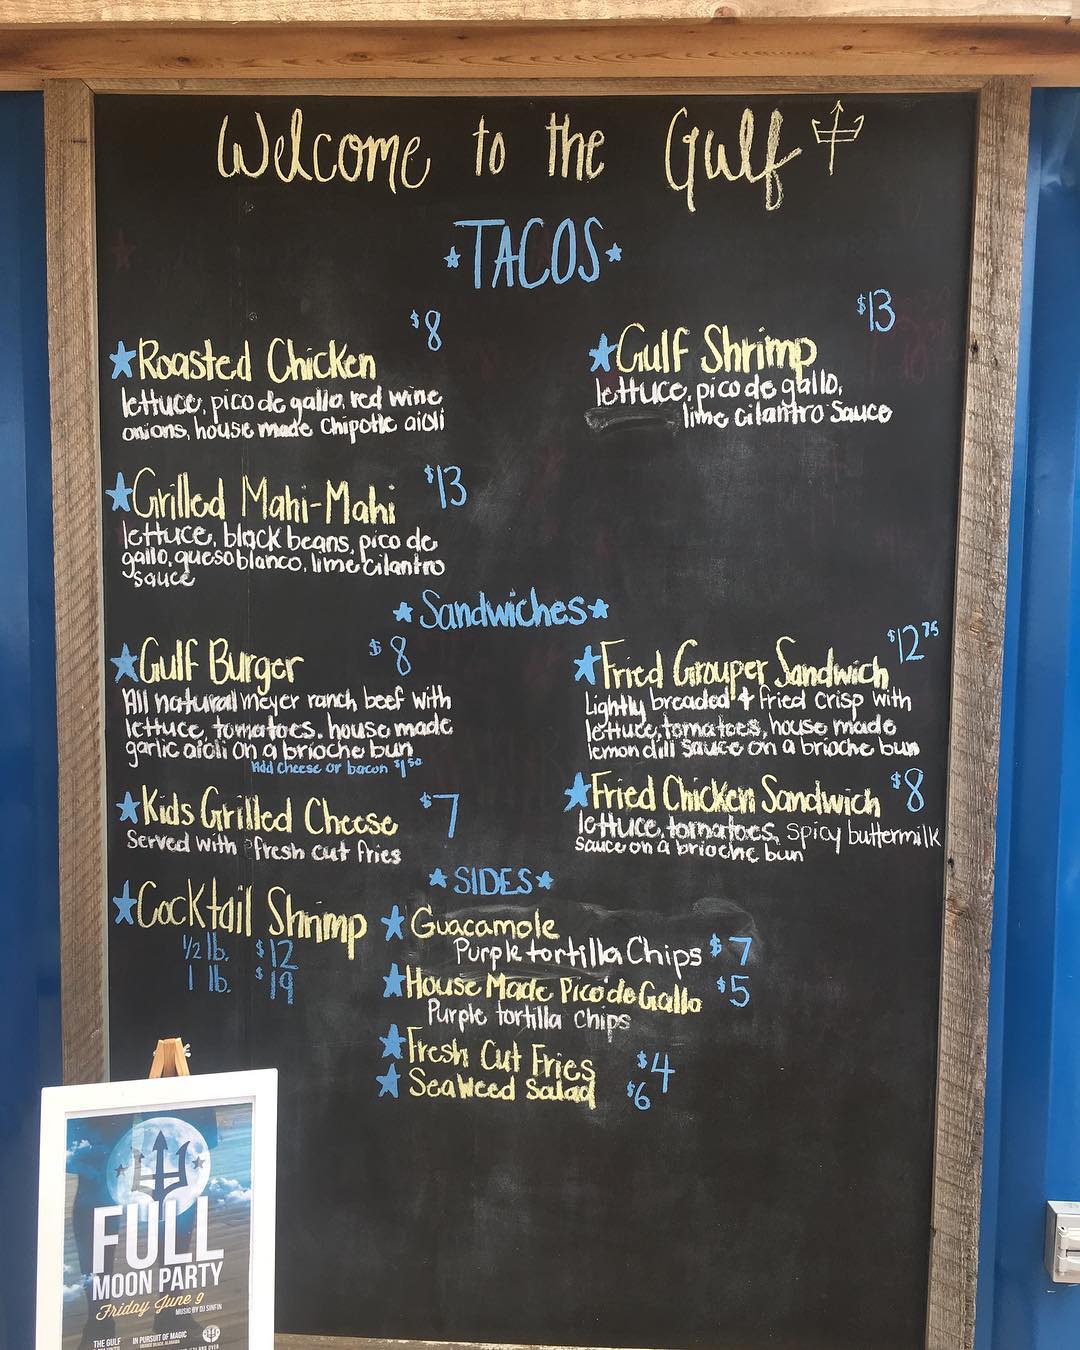 Welcome to the Gulf
TACOS
$8
Roasted Chicken
lettuce, pico de gallo, red wine
onions, house made chipotle aioli
$13
Gulf Shrimp
lettuce, pico de gallo,
lime cilantro sauce
Grilled Mahi-Mahi $13
lettuce, black beans, pico de
gallo, queso blanco, lime cilantro
sauce
Sandwiches
Gulf Burger $8
All natural meyer ranch beef with
lettuce, tomatoes, house made
garlic aioli on a brioche bun
Add cheese or bacon $1.50
Fried Grouper Sandwich $12 75
Lightly breaded & fried crisp with
lettuce, tomatoes, house made
lemon dill sauce on a brioche bun
Kids Grilled Cheese $7
Served with fresh cut fries
Fried Chicken Sandwich $8
lettuce, tomatoes, spicy buttermilk
sauce on a brioche bun
Cocktail Shrimp
1/2 lb. $12
1 lb. $19
SIDES
Guacamole
Purple tortilla Chips $7
House Made Pico de Gallo $5
Purple tortilla chips
Fresh Cut Fries $4
SeaWeed Salad $6
FULL
MOON PARTY
Friday June 9
MUSIC BY DJ SINFIN
THE GULF
IN PURSUIT OF MAGIC